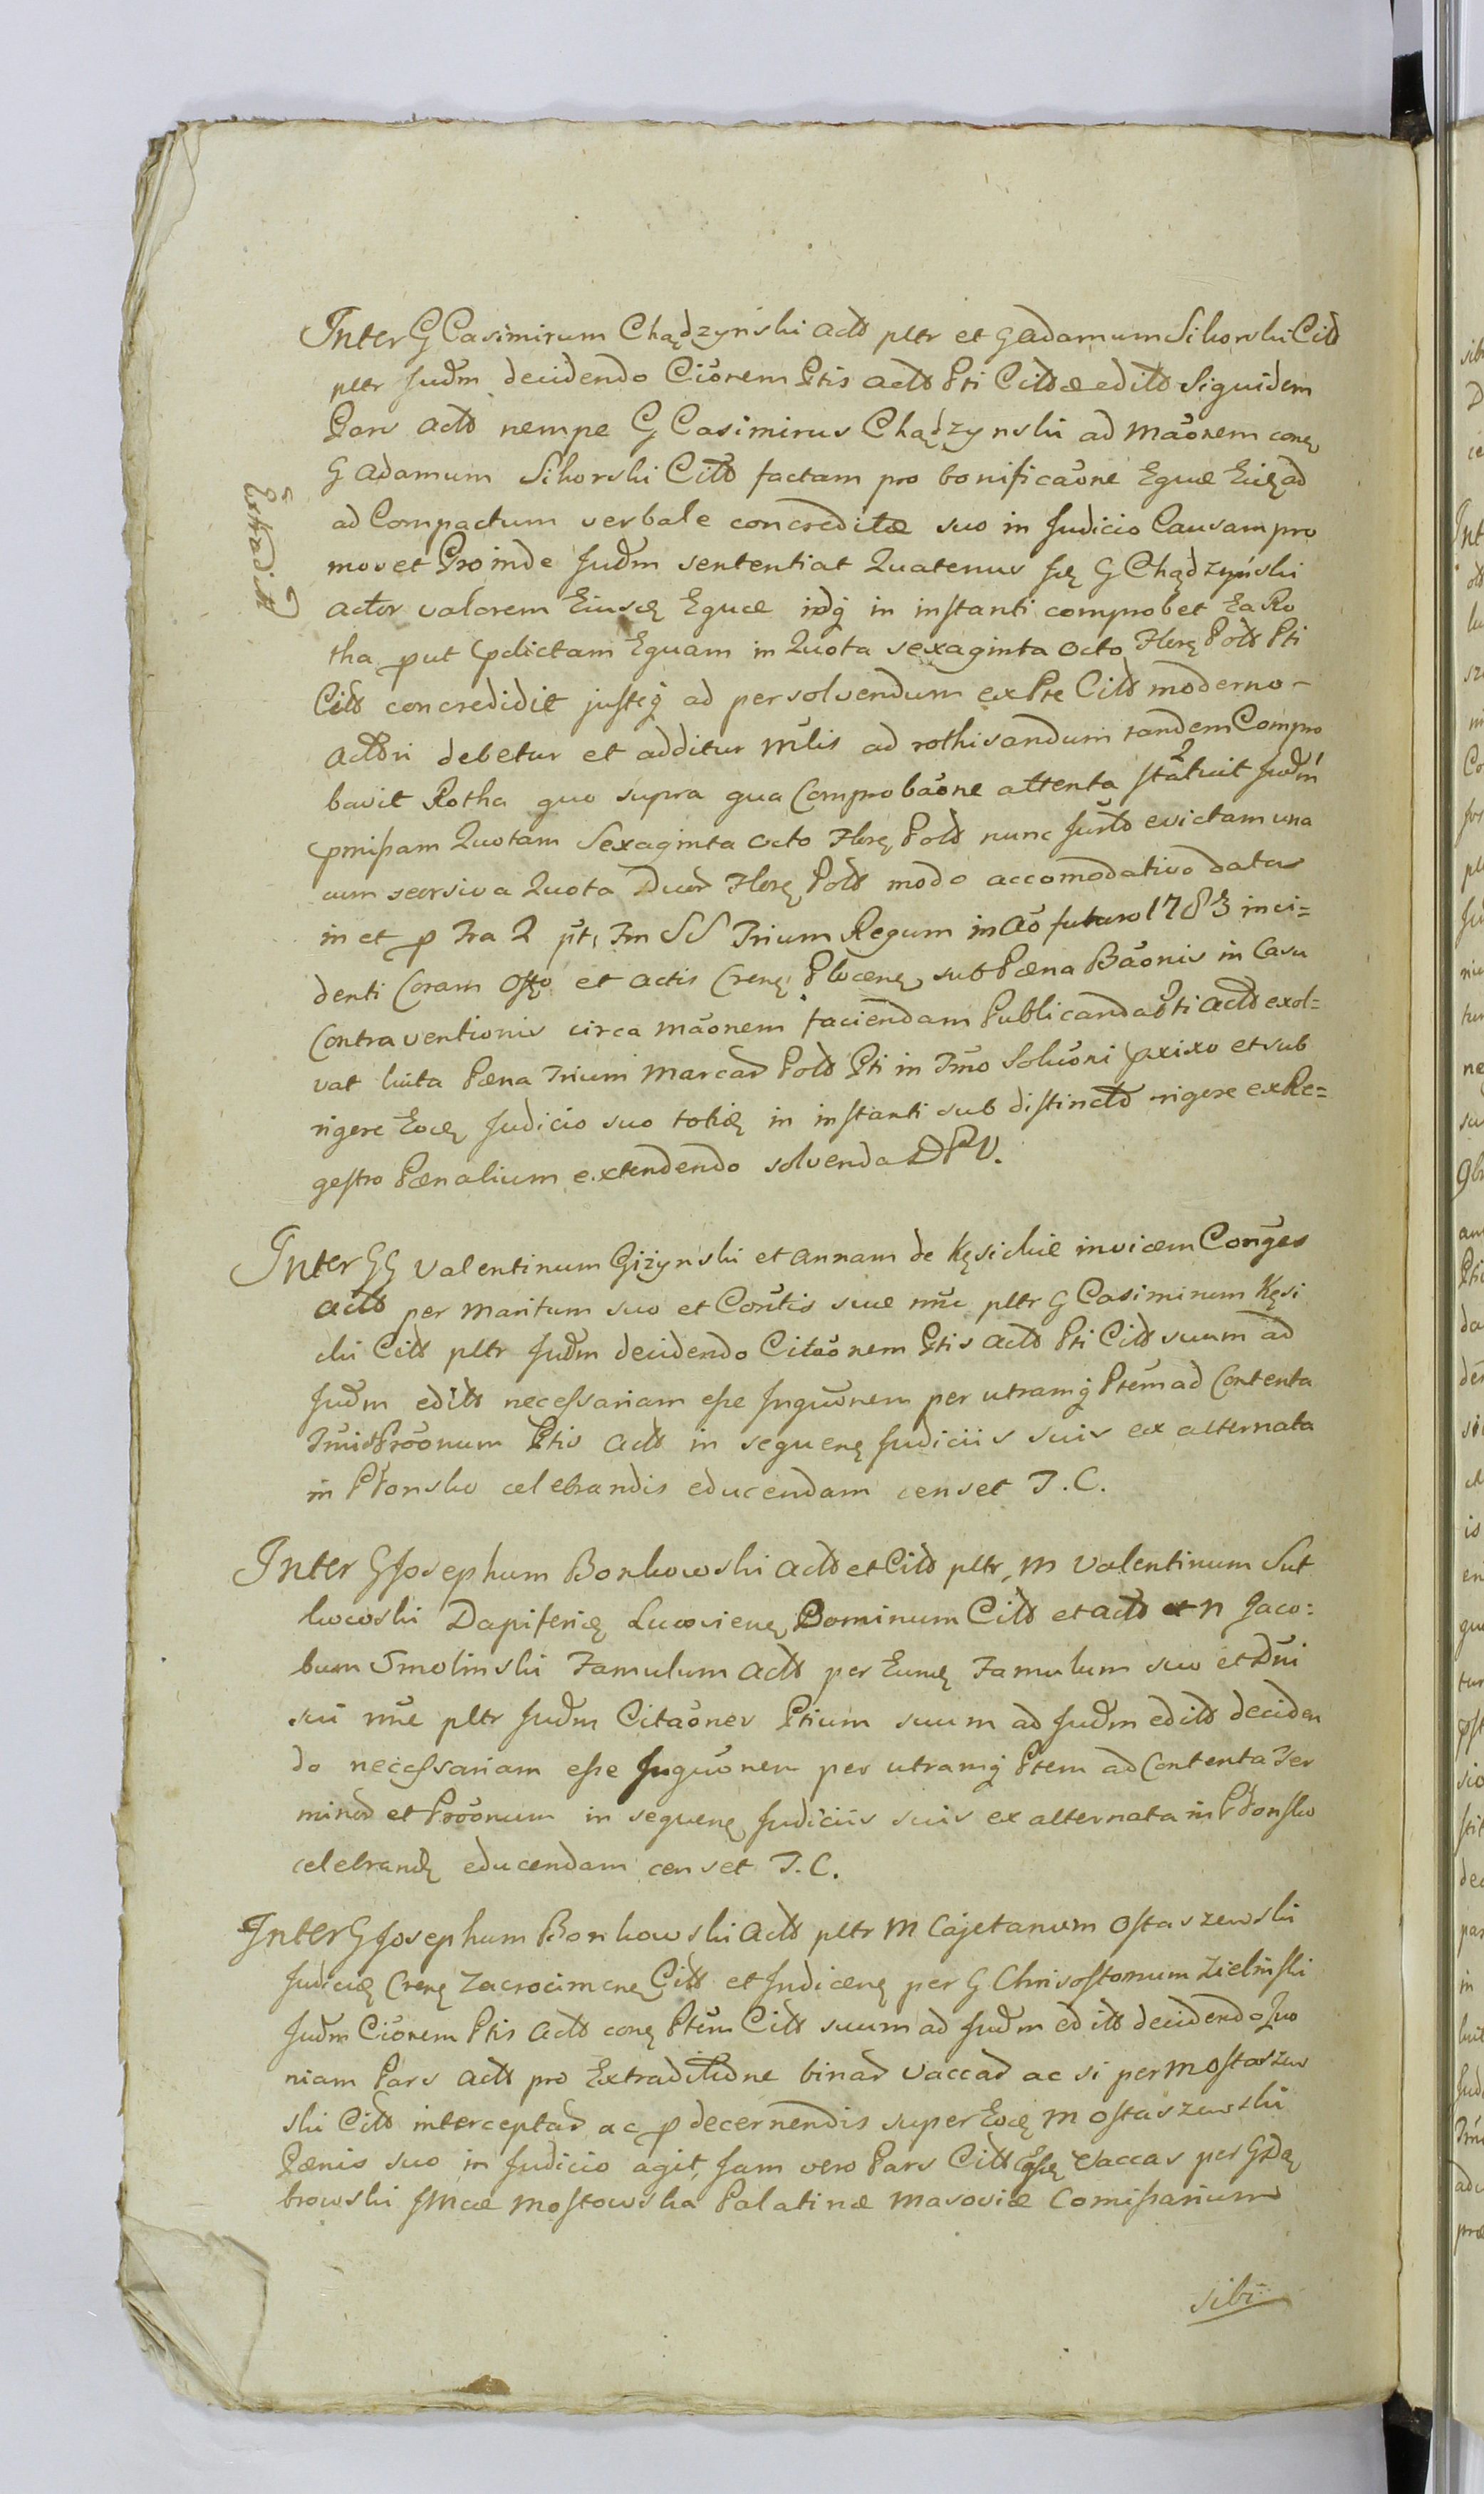 Inter G Casimirum Chądzyński Actõ pltr et G Adamum Sikorski Citõ
pltr Judm decidendo Cionem Ptis Actõ Pti Citõ edito Siquidem
Pars Actõ nempe G Casimirus Chądzyński ad Maonem conę
G Adamum Sikorski Citõ factam pro bonificaone Equæ Eiusd
ad Compactum verbale concreditæ suo in Judicio Causam pro
movet Proinde Judm sententiat Quatenus G Chądzyński
Actor valorem Eiusdę Equæ idq in instanti comprobet Ea Ro
tha put pdictam Equam in Quota sexaginta octo Florę Polõ Pti
Citõ concredidit justeq ad persolvendum ex Pte Citõ moderno
Actõri debetur et additur Mlis ad rothisandum tandem Compro
bavit Rotha quo supra qua Comprobaone attenta statuit Judm
pmissam Quotam Sexaginta octo Florę Polõ nunc evictam una
cum seorsiva Quota Duor Florę Polõ modo accomodativo datar
in et p Fra 2 pt Fm SS Trium Regum in Ao futuro 1783 inci=
denti Coram Offo et Actis Crenę Plocenę sub Pæna Baonis in Casu
Contraventionis circa Maonem faciendam Publicanda Pti Actõ exol=
vat luita Pæna Trium Marcar Polõ Pti in Tmo Soluoni pxixo et sub
rigere Eodę Judicio suo totidę in instanti sub distincto rigere ex Re=
gestro Pænalium extendendo solvenda DPV.
Extradit
Inter GG Valentinum Giżynski et Annam de Kęsickie invicem Conges
Actõ per Maritum suo et Contis suæ nne pltr G Casimirum Kęsi
cki Citõ pltr Judm decidendo Citaonem Ptis Actõ Pti Citõ suum ad
Judm edito necessariam esse Inquonem per utramq Ptem ad Contenta
Proonum Ptis Actõ in sequenę Judiciis suis ex alternata
in Płonsko celebrandis educendam censet T.C.
Inter G Josephum Bonkowski Actõ et Citõ pltr, M Valentinum Sut
kowski Dapiferidę Dominum Citõ et Actõ et N Jaco=
bum Smolinski Famulum Actõ per Eundę Famulum suo et Dni
sui nne pltr Judm Citaones Ptium suum ad Judm edito deciden
do necessariam esse Inquonem per utramq Ptem ad Contenta Ter
minor et Proonum in sequenę Judiciis suis ex alternata in Płonsko
celebrandę educendam censet T.C.
Inter G Josephum Bonkowski Actõ pltr M Cajetanum Ostaszewski
Judicię Crenę Zacrocimenę Citõ et Judicenę per G Chrisostomum Zielinski
Judm Cionem Ptis Actõ conę Ptem Citõ suum ad Judm edito decidendo Quo
niam Pars Actõ pro Extraditione binar Vaccar ac si per M Ostaszew
ski Citõ interceptar ac p decernendis super Eodę M Ostaszewski
Pænis suo in Judicio agit, Jam vero Pars Citõ Vaccas per G Dą
browski Mostowska Palatinæ Masoviæ Comissarium
sibi